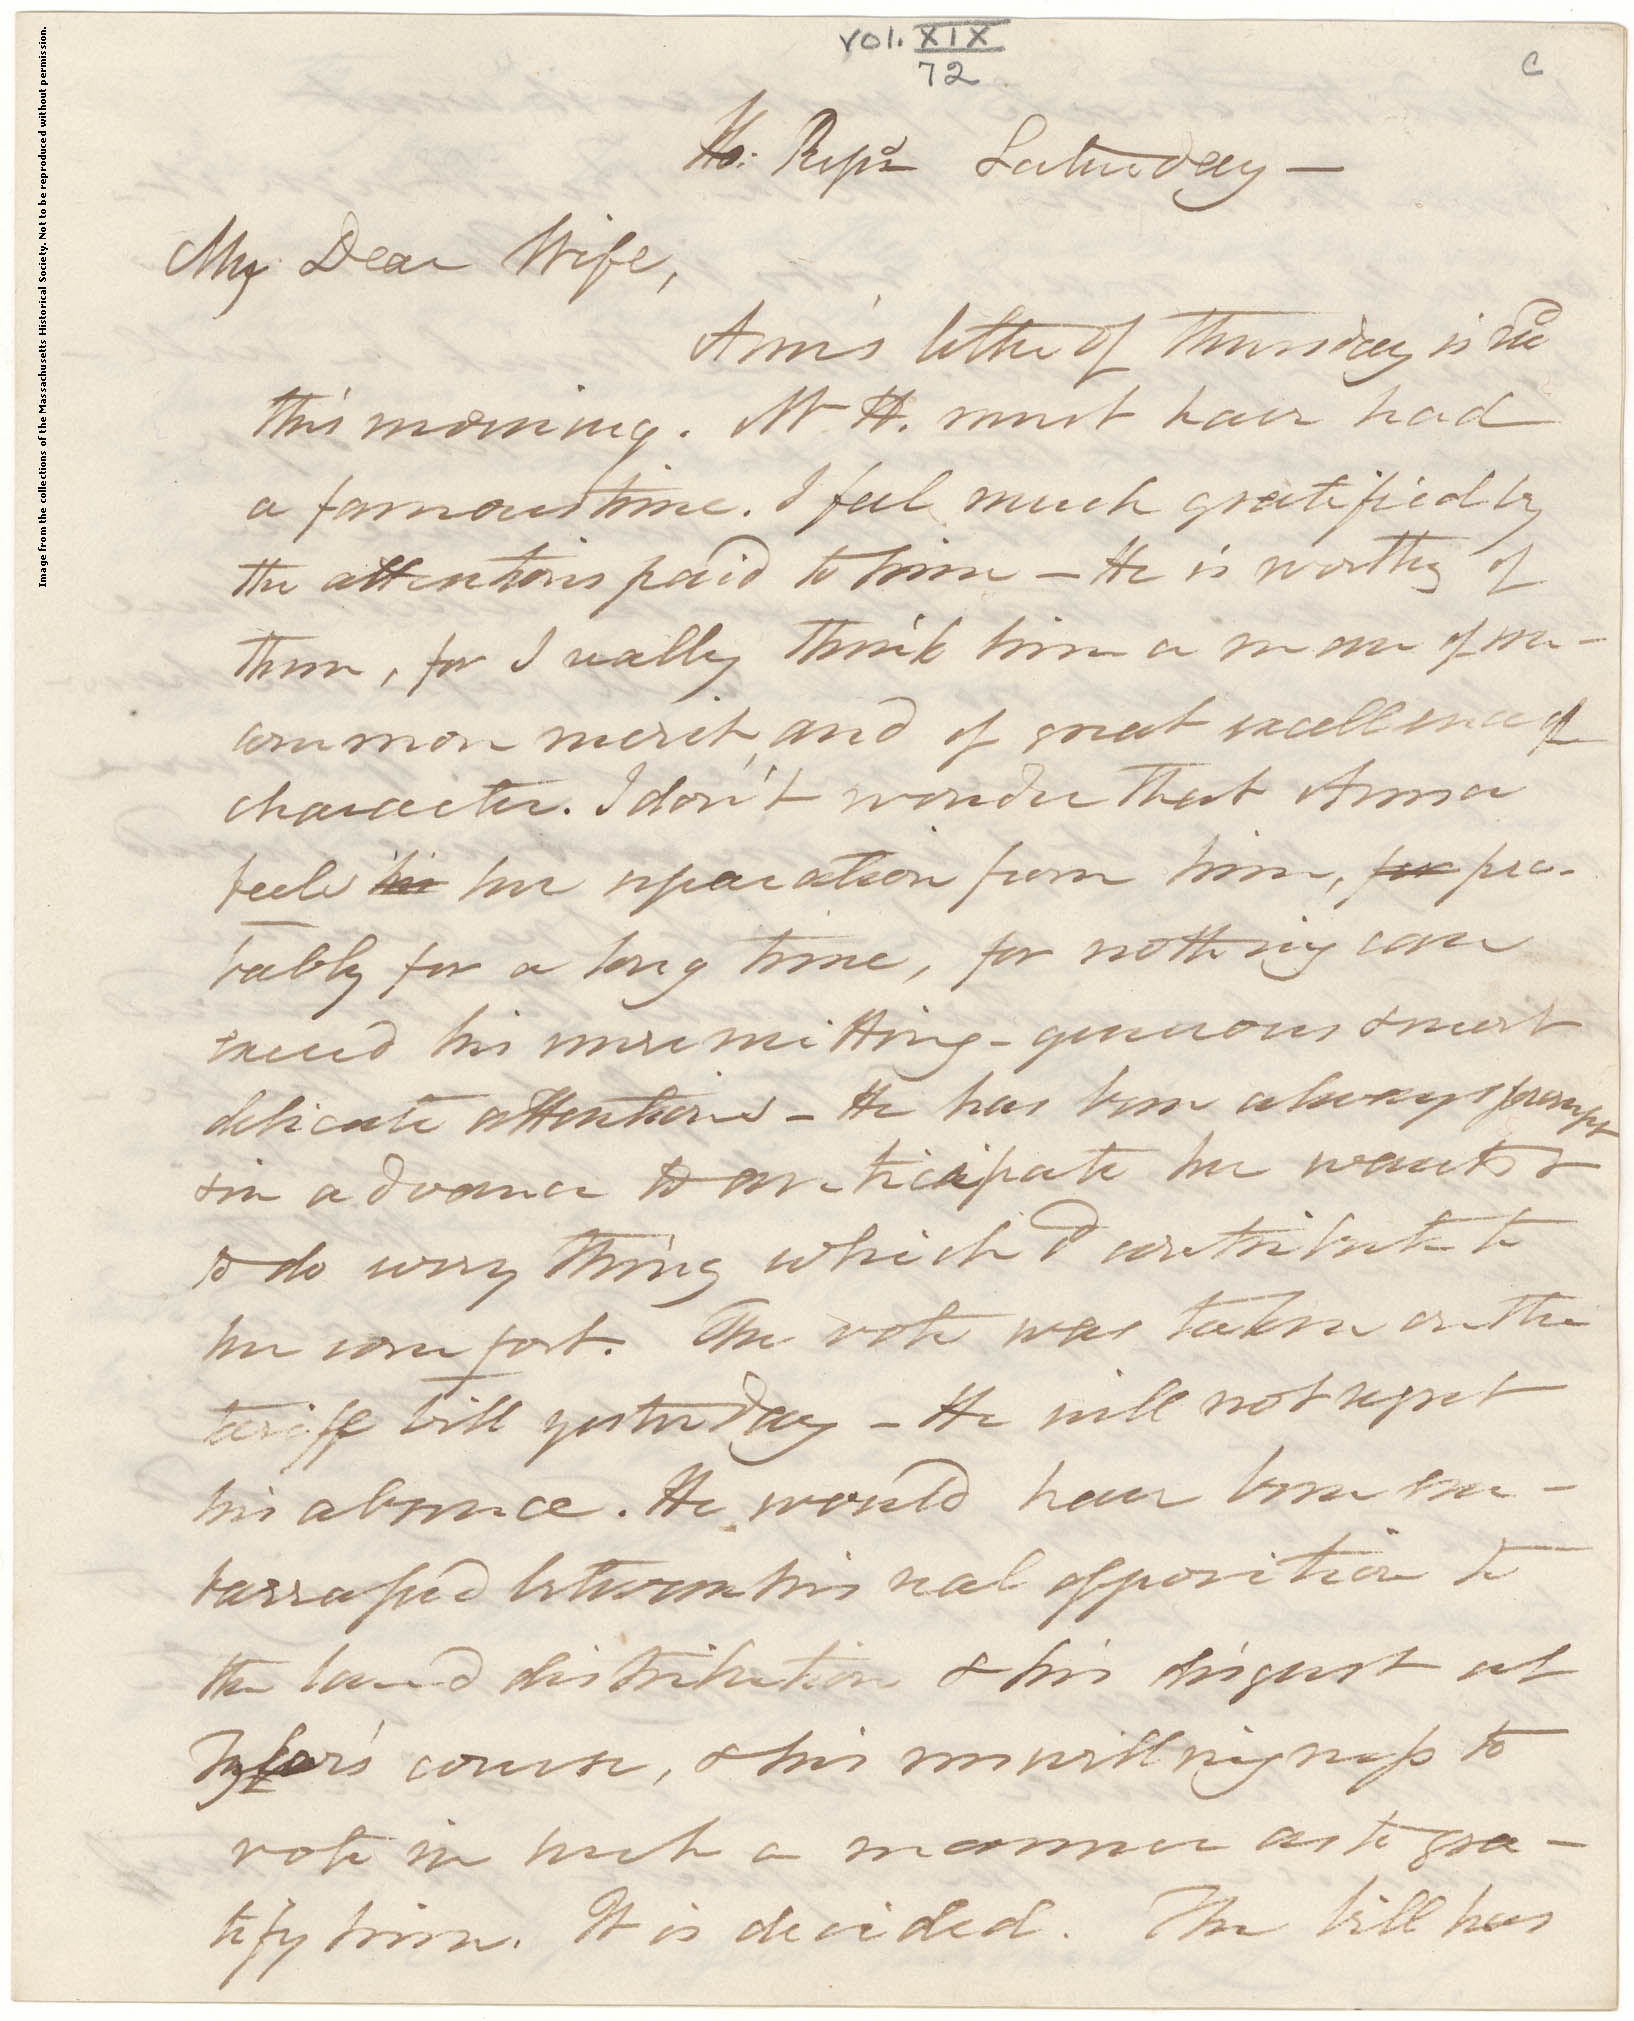 Image from the collections of the Massachusetts Historical Society. Not to be reproduced without permission.
vol. XIX
72
C
Ho: Reps Saturday —
My Dear Wife,
Ann's letter of Thursday is recd
this morning. Mr H. must have had
a famous time. I feel much gratified by
the attentions paid to him — He is worthy of
them, for I really think him a man of un-
common merit, and of great excellence of
character. I don't wonder that Anna
feels his her separation from him, for pro-
bably for a long time, for nothing can
exceed his unremitting - generous & most
delicate attentions — He has been always prompt
& in advance to anticipate her wants &
to do every thing which cd contribute to
her comfort. The vote was taken on the
tariff bill yesterday — He will not regret
his absence. He would have been em-
barrassed between his real opposition to
the land distribution & his disgust at
Tyler's course, & his unwillingness to
vote in such a manner as to gra-
tify him. It is decided. The bill has